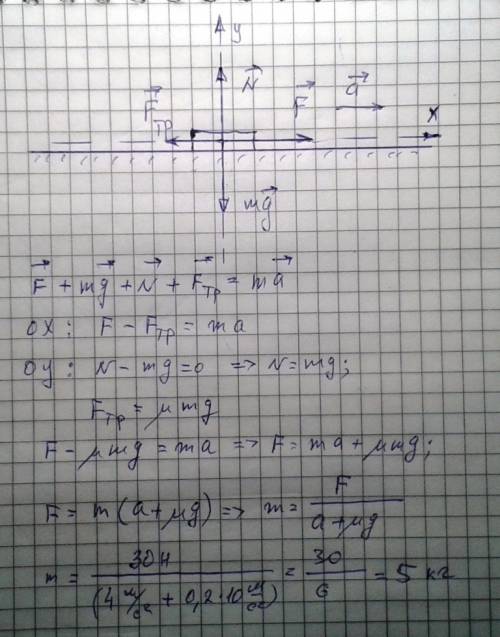 y
N⃗
F⃗тр F⃗ a⃗
x
mg⃗
F⃗ + mg⃗ + N⃗ + F⃗тр = ma⃗
OX: F - Fтр = ma
Oy: N - mg = 0 => N = mg;
Fтр = μmg
F - μmg = ma => F = ma + μmg;
F = m(a + μg) => m = F / (a + μg)
m = 30Н / (4 м/с² + 0,2·10 м/с²) = 30/6 = 5 кг